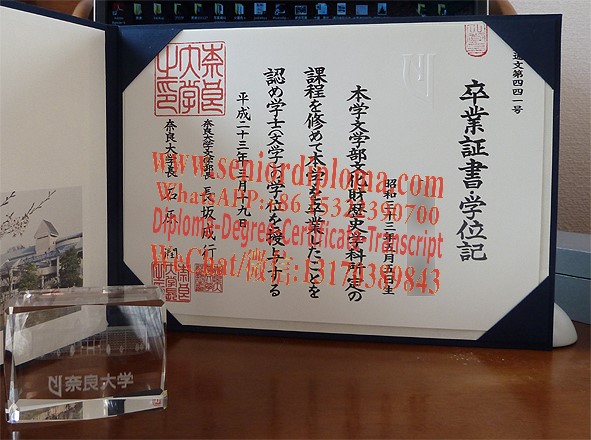 文第四四一号
卒業証書・学位記
昭和六十三年五月五日生
本学文学部文化財歴史学科所定の
課程を修めて本学を卒業したことを
認め学士(文学)の学位を授与する
平成二十三年三月十九日
奈良大学文学部長 長坂成行
奈良大学長 石原 潤
奈良大学之印
www.seniordiploma.com
WhatsAPP:+86 15323390700
Diploma-Degree-Certificate-Transcript
WeChat/微信:13170389843
奈良大学